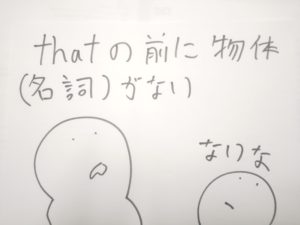 thatの前に物体
(名詞)がない
ないな